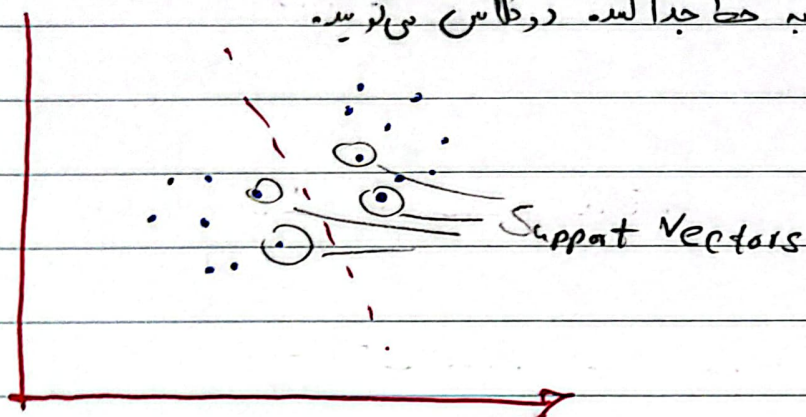 به خط جدا کننده دو کلاس می‌گویند.
Support Vectors